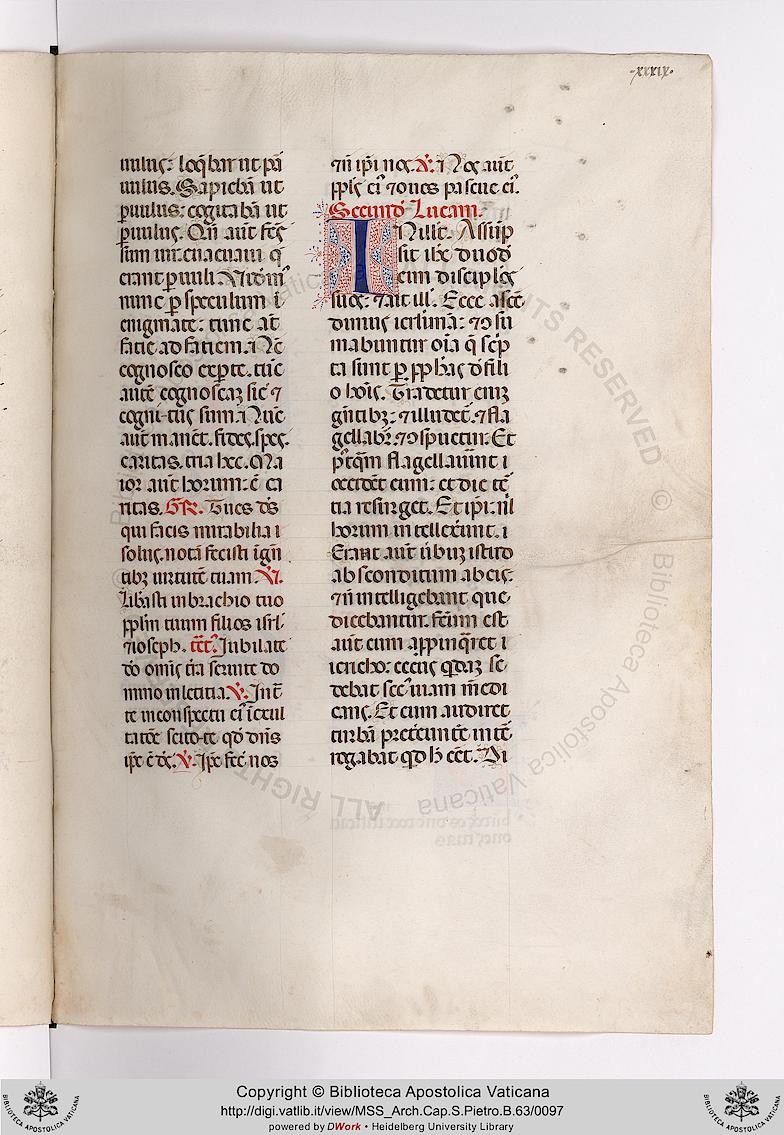 ·xxxix·
uulus: loq̄bar ut pa
uulus. Sapiebā ut
ꝑuulus: cogitabā ut
ꝑuulus. Qn̄ aūt fc̄s
sum uir. euacuaui q̄
erant ꝑuuli. Uidem᷒
nunc ꝑ speculum ī
enigmate: tunc aūt
facie ad faciem. Nūc
cognosco ex ꝑte. tūc
autē cognoscaz sic̄ ⁊
cognitus sum. Nūc
aūt manēt. fides. spes.
caritas. tria hec. Ma
ior aūt horum: ē ca
ritas. Gr̄. Tu es d̄s
qui facis mirabilia
solus. notā fecisti ī gn̄
tibȝ uirtutē tuam. V̄.
Libasti in brachio tuo
pplm̄ tuum filios isrl̄
⁊ ioseph. tc̄t᷒. Iubilate
dō omīs t̄ra seruite do
mino in letitia. V̄. Int̄
te in conspectu ei᷒ ī exul
tatōe scitote qđ dn̄s
ip̄e ē d̄s. V̄. Ip̄e fec̄ nos
⁊ n̄ ip̄i nos. V̄. Nos aūt
ppl̄s ei᷒ ⁊ oues pascue ei᷒.
Secund̄ Lucam.
IN illo t̄. Assūp
sit ih̄c duod
ecim discip̄los
suos: ⁊ ait ill̄. Ecce ascē
dimus ierl̄imā: ⁊ ↄ̄su
mabuntur oīa q̄ sc̄p
ta sunt ꝑ ꝓphās d̄ fili
o hoīs. Tradetur enīȝ
gn̄tibȝ: ⁊ illudet᷒. ⁊ fla
gellab᷒: ⁊ ↄ̄spuetur. Et
p᷒tq̄m flagellauīnt
occidēt eum: et die t̄
tia resurget. Et ip̄i nl̄
horum intellexūnt.
Erant aūt ūbuȝ istud
absconditum ab eis:
⁊ n̄ intelligebant que
dicebantur. fc̄um est
aūt cum appinq̄ret
iericho: cecus q̄daȝ se
debat sec᷒ uiam mēdi
cans. Et cum audiret
turbā pretereūtē inte
rogabat qđ h̄ eēt. Di
Copyright © Biblioteca Apostolica Vaticana
http://digi.vatlib.it/view/MSS_Arch.Cap.S.Pietro.B.63/0097
powered by DWork • Heidelberg University Library